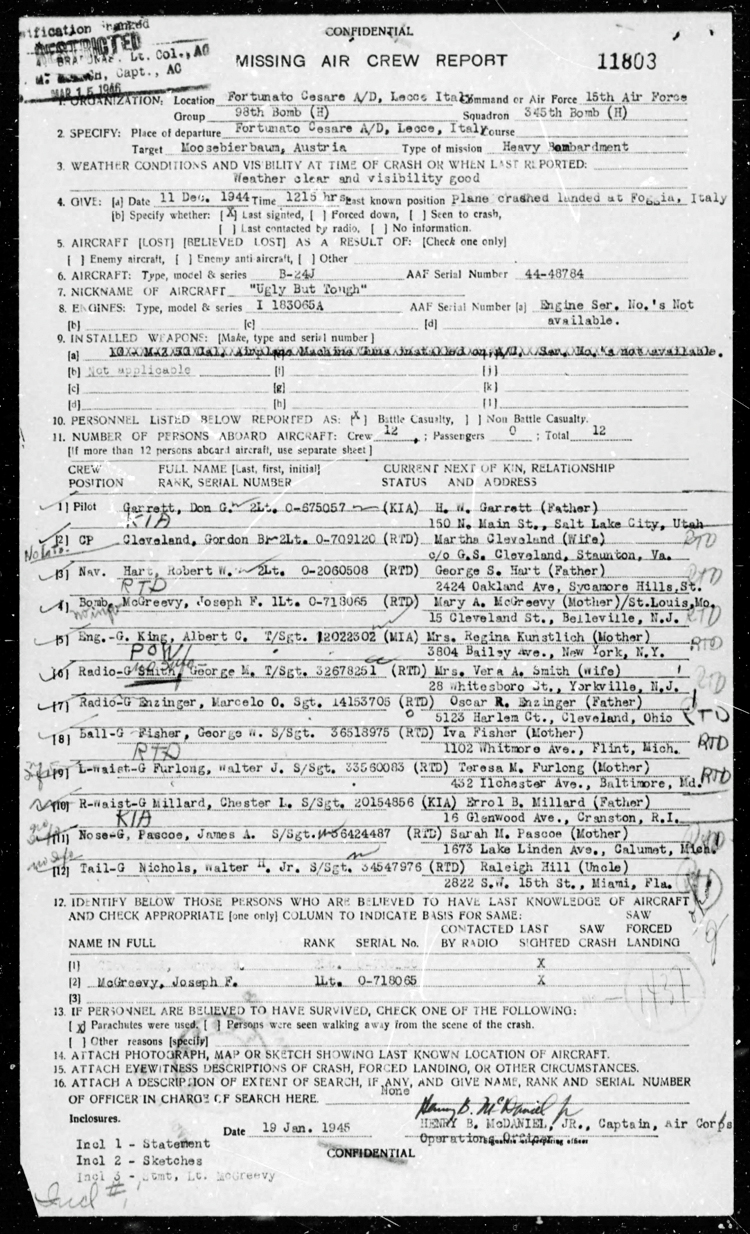 CONFIDENTIAL
RESTRICTED
Lt. Col., AC
Capt., AC
MAR 15 1946
MISSING AIR CREW REPORT 11803
1. ORGANIZATION: Location Fortunato Cesare A/D, Lecce Italy Command or Air Force 15th Air Force
Group 98th Bomb (H) Squadron 345th Bomb (H)
2. SPECIFY: Place of departure Fortunato Cesare A/D, Lecce, Italy Course
Target Moosebierbaum, Austria Type of mission Heavy Bombardment
3. WEATHER CONDITIONS AND VISIBILITY AT TIME OF CRASH OR WHEN LAST REPORTED:
Weather clear and visibility good
4. GIVE: [a] Date 11 Dec. 1944 Time 1215 hrs Last known position Plane crashed landed at Foggia, Italy
[b] Specify whether: [X] Last sighted, [ ] Forced down, [ ] Seen to crash,
[ ] Last contacted by radio, [ ] No information.
5. AIRCRAFT [LOST] [BELIEVED LOST] AS A RESULT OF: [Check one only]
[ ] Enemy aircraft, [ ] Enemy anti aircraft, [ ] Other
6. AIRCRAFT: Type, model & series B-24J AAF Serial Number 44-48784
7. NICKNAME OF AIRCRAFT "Ugly But Tough"
8. ENGINES: Type, model & series I 183065A AAF Serial Number [a] Engine Ser. No.'s Not
[b] [c] [d] available.
9. INSTALLED WEAPONS: [Make, type and serial number]
[a] 10 - M-2 50 Cal. Airplane Machine Guns installed on A/C. Ser. No.'s not available.
[b] Not applicable [f] [j]
[c] [g] [k]
[d] [h] [l]
10. PERSONNEL LISTED BELOW REPORTED AS: [X] Battle Casualty, [ ] Non Battle Casualty.
11. NUMBER OF PERSONS ABOARD AIRCRAFT: Crew 12 ; Passengers 0 ; Total 12
[If more than 12 persons aboard aircraft, use separate sheet]
CREW FULL NAME [Last, first, initial] CURRENT NEXT OF KIN, RELATIONSHIP
POSITION RANK, SERIAL NUMBER STATUS AND ADDRESS
[1] Pilot Garrett, Don G. 2Lt. O-675057 (KIA) H. W. Garrett (Father)
KIA 150 N. Main St., Salt Lake City, Utah
[2] CP Cleveland, Gordon B. 2Lt. O-709120 (RTD) Martha Cleveland (Wife) RTD
c/o G.S. Cleveland, Staunton, Va.
[3] Nav. Hart, Robert W. 2Lt. O-2060508 (RTD) George S. Hart (Father) RTD
RTD 2424 Oakland Ave, Sycamore Hills, St.
[4] Bomb. McGreevy, Joseph F. 1Lt. O-718065 (RTD) Mary A. McGreevy (Mother)/St.Louis,Mo.
15 Cleveland St., Belleville, N.J. RTD
[5] Eng.-G. King, Albert C. T/Sgt. 12022302 (MIA) Mrs. Regina Kunstlich (Mother) RTD
POW 3804 Bailey Ave., New York, N.Y.
[6] Radio-G Smith, George M. T/Sgt. 32678251 (RTD) Mrs. Vera A. Smith (Wife) RTD
28 Whitesboro St., Yorkville, N.J.
[7] Radio-G Enzinger, Marcelo O. Sgt. 14153705 (RTD) Oscar R. Enzinger (Father)
5123 Harlem Ct., Cleveland, Ohio RTD
[8] Ball-G Fisher, George W. S/Sgt. 36518975 (RTD) Iva Fisher (Mother)
RTD 1102 Whitmore Ave., Flint, Mich. RTD
[9] L-Waist-G Furlong, Walter J. S/Sgt. 33560083 (RTD) Teresa M. Furlong (Mother) RTD
432 Ilchester Ave., Baltimore, Md.
[10] R-Waist-G Millard, Chester L. S/Sgt. 20154856 (KIA) Errol B. Millard (Father)
KIA 16 Glenwood Ave., Cranston, R.I.
[11] Nose-G, Pascoe, James A. S/Sgt. 36424487 (RTD) Sarah M. Pascoe (Mother) RTD
1673 Lake Linden Ave., Calumet, Mich.
[12] Tail-G Nichols, Walter H. Jr. S/Sgt. 34547976 (RTD) Raleigh Hill (Uncle) RTD
2822 S.W. 15th St., Miami, Fla.
12. IDENTIFY BELOW THOSE PERSONS WHO ARE BELIEVED TO HAVE LAST KNOWLEDGE OF AIRCRAFT
AND CHECK APPROPRIATE [one only] COLUMN TO INDICATE BASIS FOR SAME: SAW
CONTACTED LAST SAW FORCED
NAME IN FULL RANK SERIAL No. BY RADIO SIGHTED CRASH LANDING
[1] X
[2] McGreevy, Joseph F. 1Lt. O-718065 X
[3]
1437
13. IF PERSONNEL ARE BELIEVED TO HAVE SURVIVED, CHECK ONE OF THE FOLLOWING:
[X] Parachutes were used, [ ] Persons were seen walking away from the scene of the crash.
[ ] Other reasons [specify]
14. ATTACH PHOTOGRAPH, MAP OR SKETCH SHOWING LAST KNOWN LOCATION OF AIRCRAFT.
15. ATTACH EYEWITNESS DESCRIPTIONS OF CRASH, FORCED LANDING, OR OTHER CIRCUMSTANCES.
16. ATTACH A DESCRIPTION OF EXTENT OF SEARCH, IF ANY, AND GIVE NAME, RANK AND SERIAL NUMBER
OF OFFICER IN CHARGE OF SEARCH HERE. None
Henry B. McDaniel Jr
Inclosures. Date 19 Jan. 1945 HENRY B. McDANIEL, JR., Captain, Air Corps
Operations Officer
Incl 1 - Statement
Incl 2 - Sketches
Incl 3 - Stmt, Lt. McGreevy
CONFIDENTIAL
Incl #1